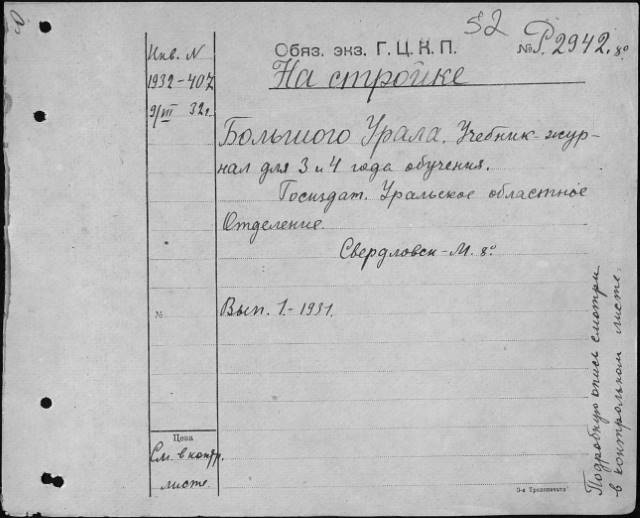 52
Инв. N
1932-407
9/III 32г.
Обяз. экз. Г. Ц. К. П.
№ Р. 2942. 8°
На стройке
Большого Урала. Учебник-жур-
нал для 3 и 4 года обучения.
Госиздат. Уральское областное
Отделение.
Свердловск-М. 8°
№
Вып. 1.-1931.
Цена
См. в контр.
листе.
Подробную опись смотри
в контрольном листе.